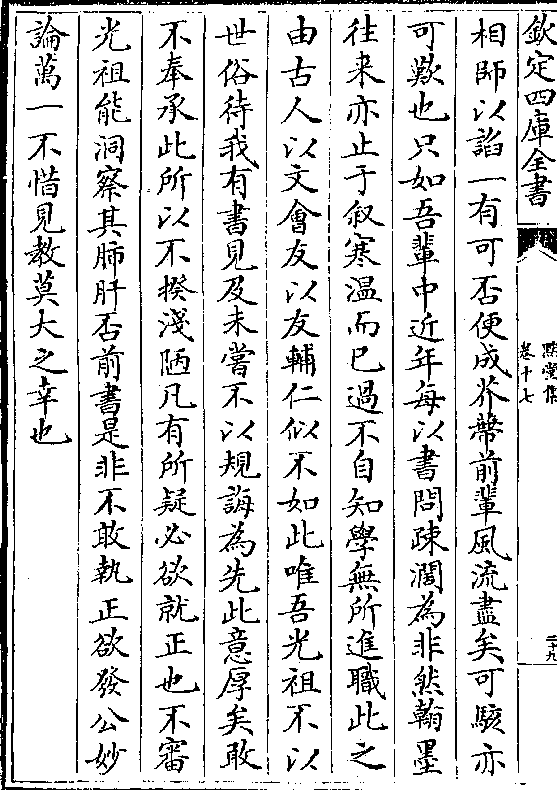 欽定四庫全書
默堂集
卷十七
二十九
相師以諂一有可否便成芥蔕前輩風流盡矣可駭亦
可歎也只如吾輩中近年每以書問疎濶為非然翰墨
往来亦止于叙寒温而已過不自知學無所進職此之
由古人以文會友以友輔仁似不如此唯吾光祖不以
世俗待我有書見及未嘗不以規誨為先此意厚矣敢
不奉承此所以不揆淺陋凡有所疑必欲就正也不審
光祖能洞察其肺肝否前書是非不敢執正欲發公妙
論萬一不惜見教莫大之幸也